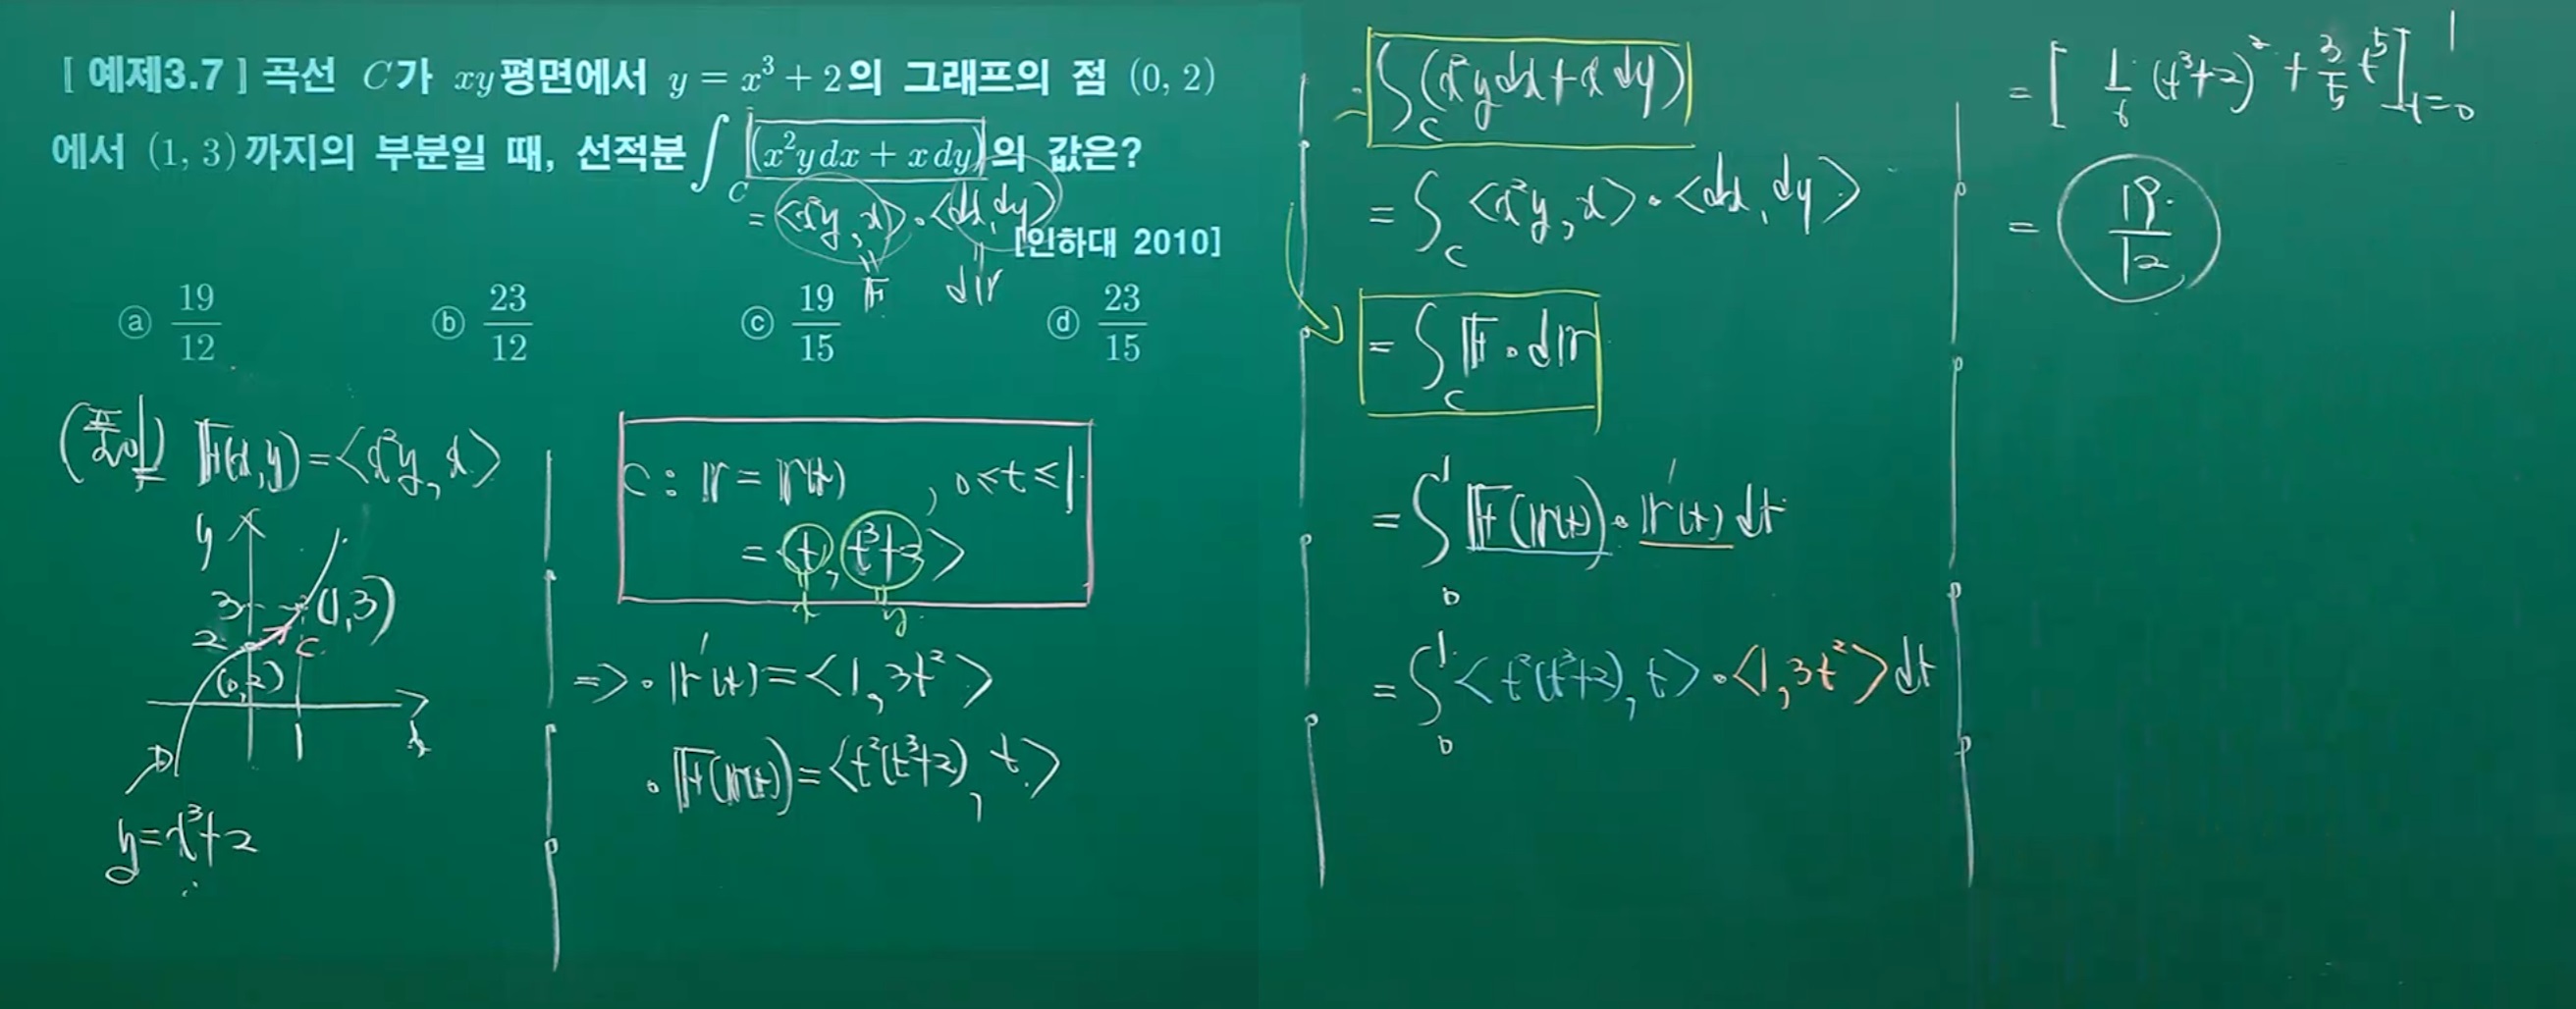 [ 예제3.7 ] 곡선 C가 xy평면에서 y = x³ + 2의 그래프의 점 (0, 2)
에서 (1, 3)까지의 부분일 때, 선적분 ∫_C (x²y dx + x dy)의 값은?
= <x²y, x> · <dx, dy>
[인하대 2010]
𝔽 d𝕣
ⓐ 19/12 ⓑ 23/12 ⓒ 19/15 ⓓ 23/15
(풀이) 𝔽(x,y) = <x²y, x>
y
3
(1,3)
2
C
(0,2)
1
x
y = x³+2
C : 𝕣 = 𝕣(t) , 0≤t≤1
= <t, t³+2>
x y
=> · 𝕣'(t) = <1, 3t²>
· 𝔽(𝕣(t)) = <t²(t³+2), t>
∫_C (x²y dx + x dy)
= ∫_C <x²y, x> · <dx, dy>
= ∫_C 𝔽 · d𝕣
= ∫₀¹ 𝔽(𝕣(t)) · 𝕣'(t) dt
= ∫₀¹ <t²(t³+2), t> · <1, 3t²> dt
= [ 1/6 (t³+2)² + 3/5 t⁵ ]_{t=0}^{1}
= 19/12